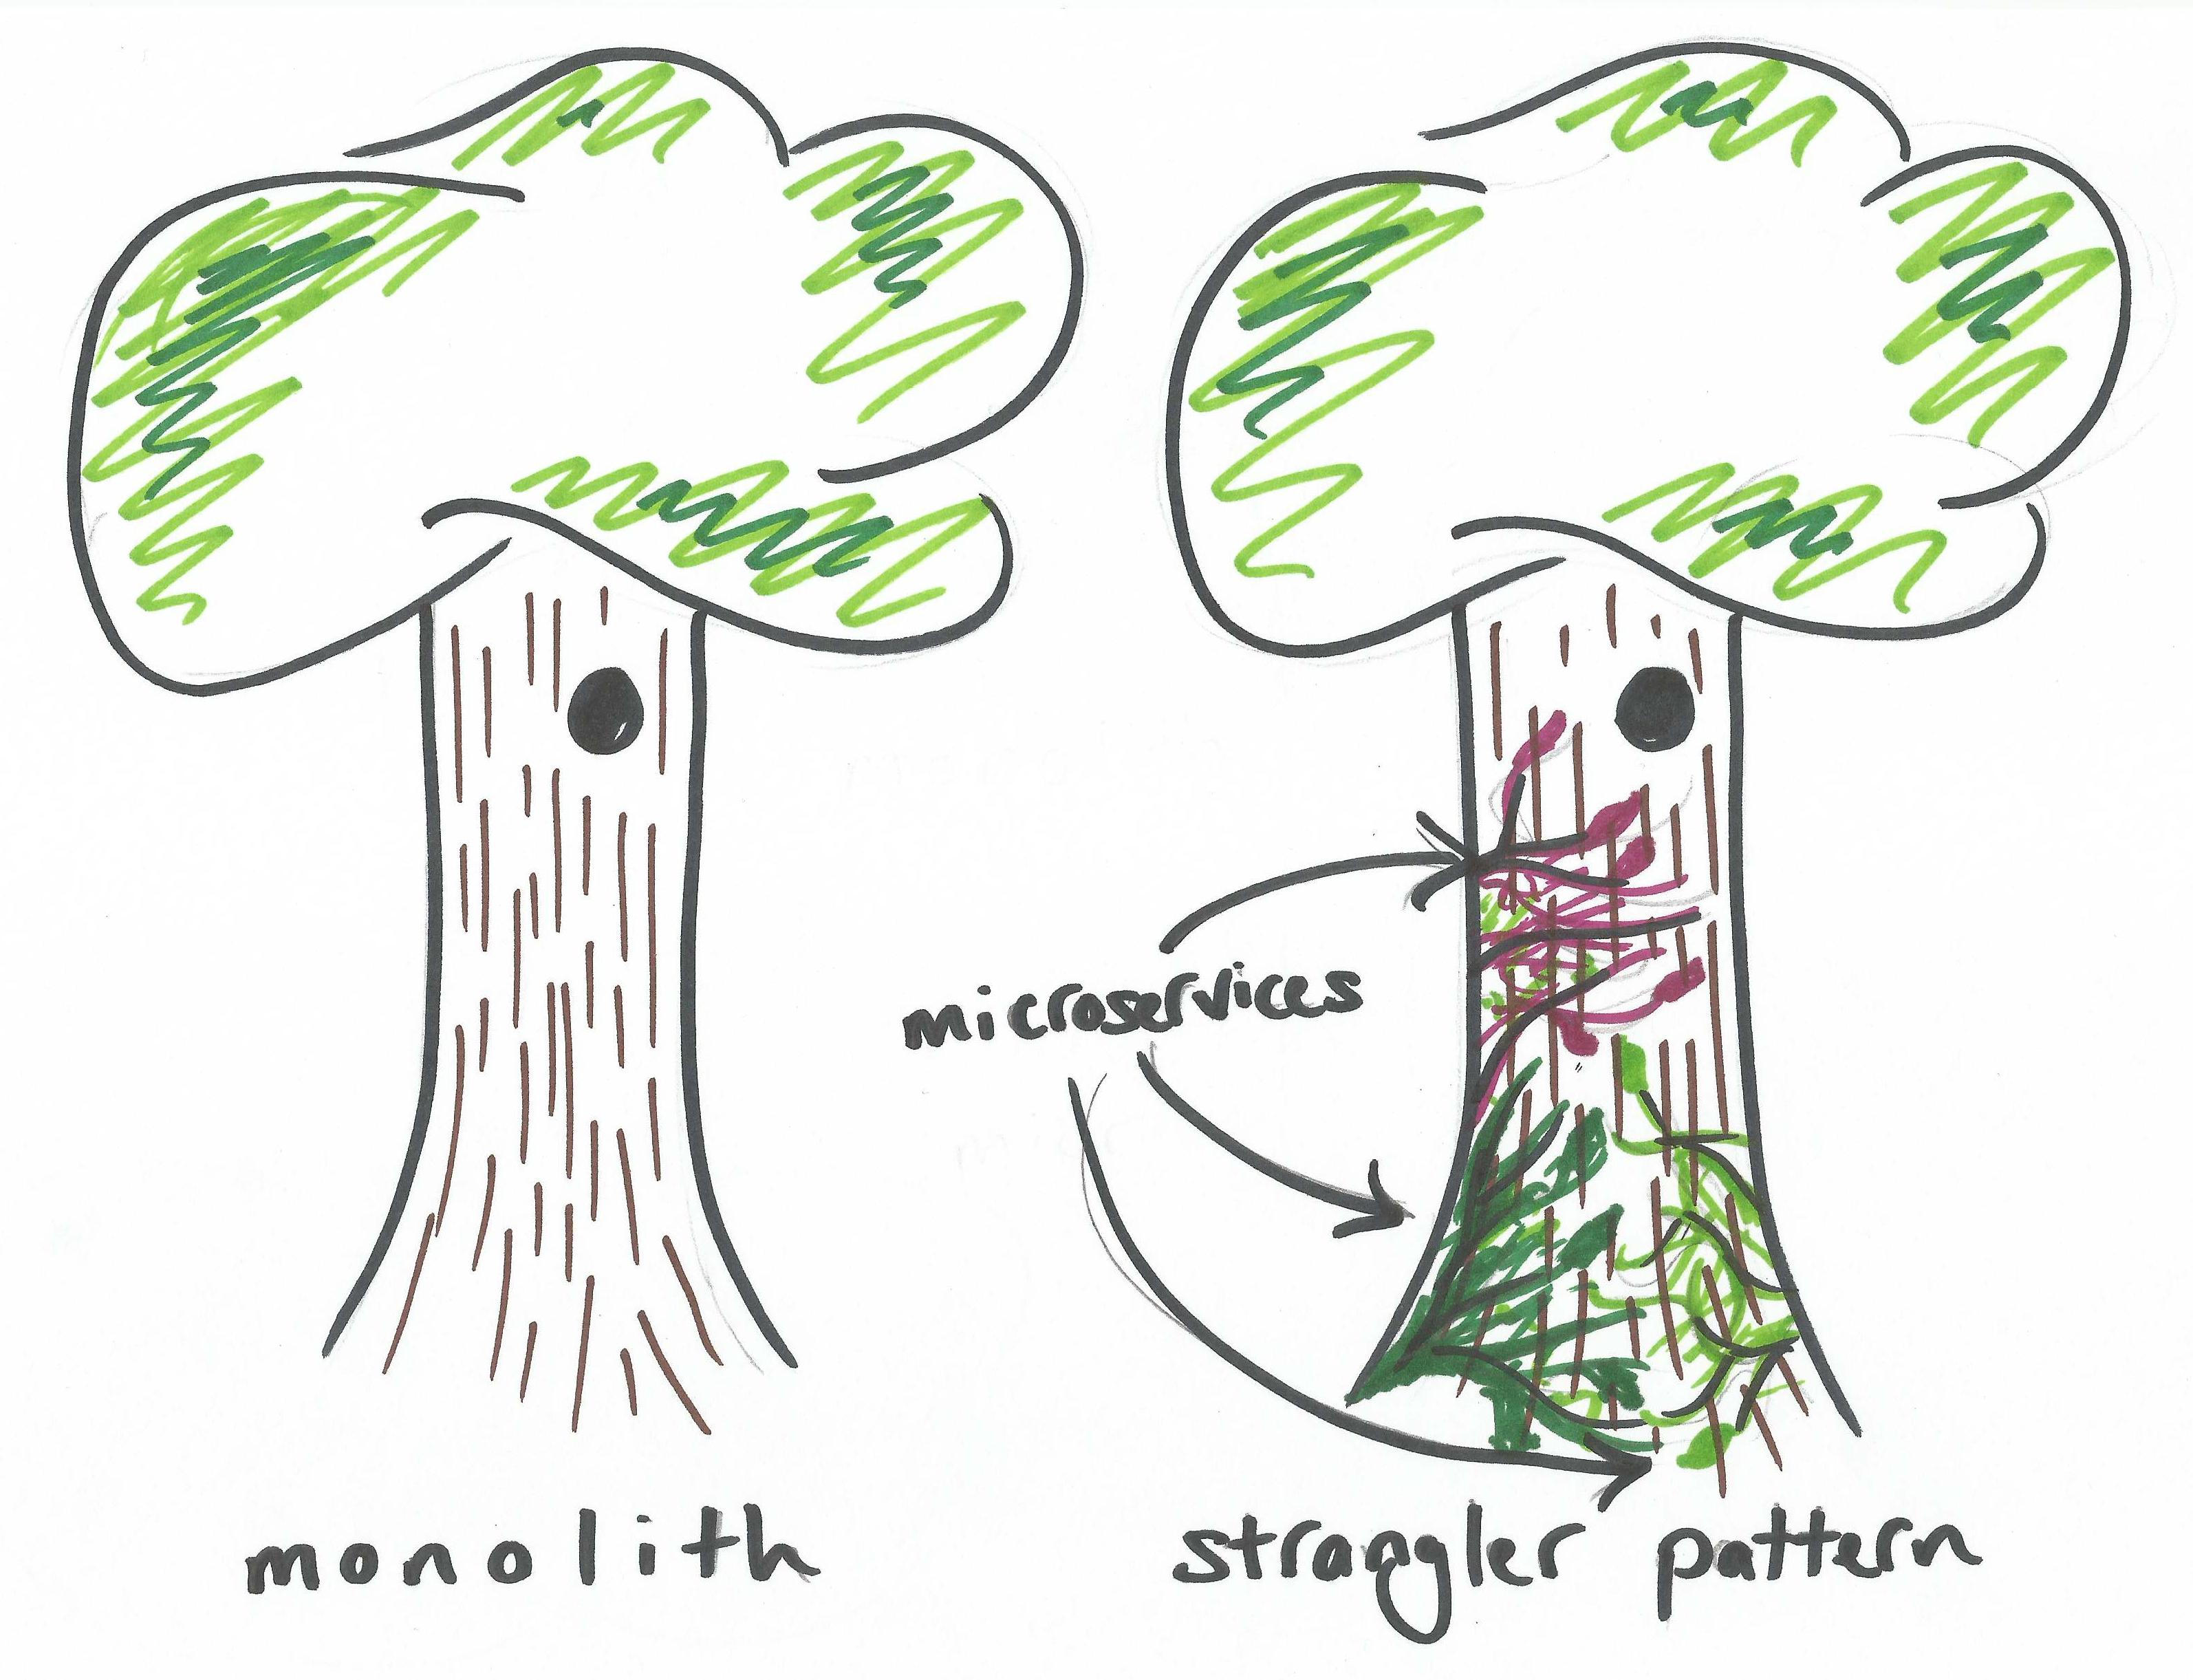 microservices
monolith
strangler pattern